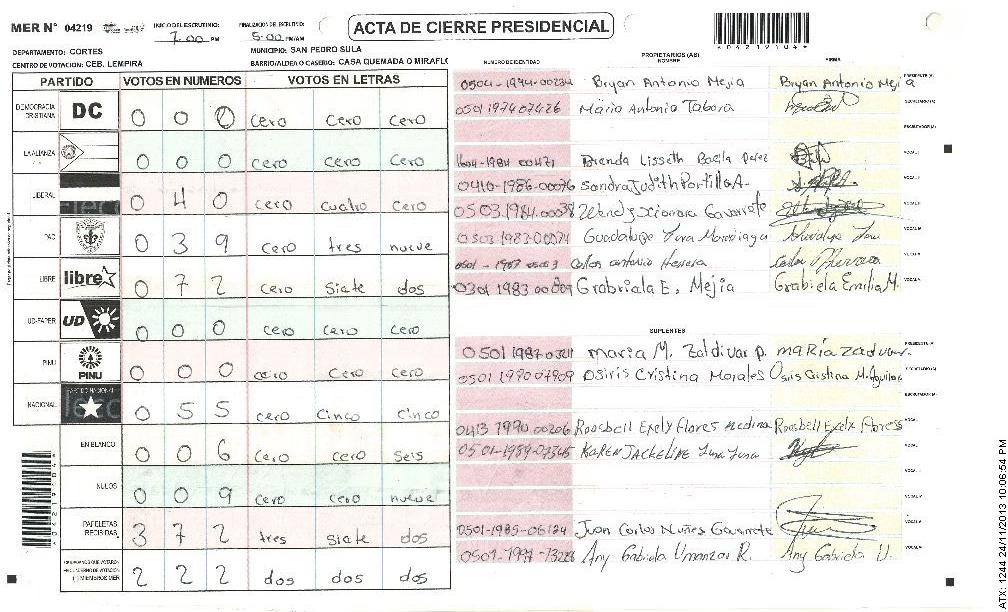 MER N° 04219
INICIO DEL ESCRUTINIO: 7:00 PM
FINALIZACION DEL ESCRUTINIO: 5:00 PM/AM
ACTA DE CIERRE PRESIDENCIAL
*04219104*
DEPARTAMENTO: CORTES
MUNICIPIO: SAN PEDRO SULA
CENTRO DE VOTACION: CEB. LEMPIRA
BARRIO/ALDEA O CASERIO: CASA QUEMADA O MIRAFLO
PARTIDO VOTOS EN NUMEROS VOTOS EN LETRAS
DEMOCRACIA CRISTIANA DC 0 0 0 cero cero cero
LA ALIANZA 0 0 0 cero cero cero
LIBERAL 0 4 0 cero cuatro cero
PAC 0 3 9 cero tres nueve
LIBRE libre 0 7 2 cero siete dos
UD-FAPER UD 0 0 0 cero cero cero
PINU PINU 0 0 0 cero cero cero
NACIONAL 0 5 5 cero cinco cinco
EN BLANCO 0 0 6 cero cero seis
NULOS 0 0 9 cero cero nueve
PAPELETAS RECIBIDAS 3 7 2 tres siete dos
MIEMBROS MER 2 2 2 dos dos dos
PROPIETARIOS (AS)
NUMERO DE IDENTIDAD NOMBRE FIRMA
0504-1994-00234 Bryan Antonio Mejia Bryan Antonio Mejia PRESIDENTE(A)
0501197407426 Maria Antonia Tabora SECRETARIO(A)
ESCRUTADOR(A)
1984 Brenda Lisseth VOCAL I
0410-1986-00076 Sandra Judith Portillo A. VOCAL
0503.1984.00038 VOCAL
0503 1983-00074 Guadalupe VOCAL
0501 - 1987 Carlos antonio Herrera VOCAL
0301 1983 Grabriala E. Mejia Grabiela Emilia M. VOCAL
SUPLENTES
0501 1987 maria M. Zaldivar p. PRESIDENTE(A)
0501 1990 07909 Osiris Cristina Morales SECRETARIO(A)
ESCRUTADOR(A)
0413 1990 00206 Roosbell Exely Flores medina Roosbell Exely Flores VOCAL
0501-1989-07345 KAREN JACKELINE VOCAL
VOCAL
VOCAL
0501-1985-06124 Juan Carlos Nuñes VOCAL
0501-1991-13028 Any Gabriela Umanzor R. Any Gabriela U. VOCAL
ATX: 1244 24/11/2013 10:06:54 PM